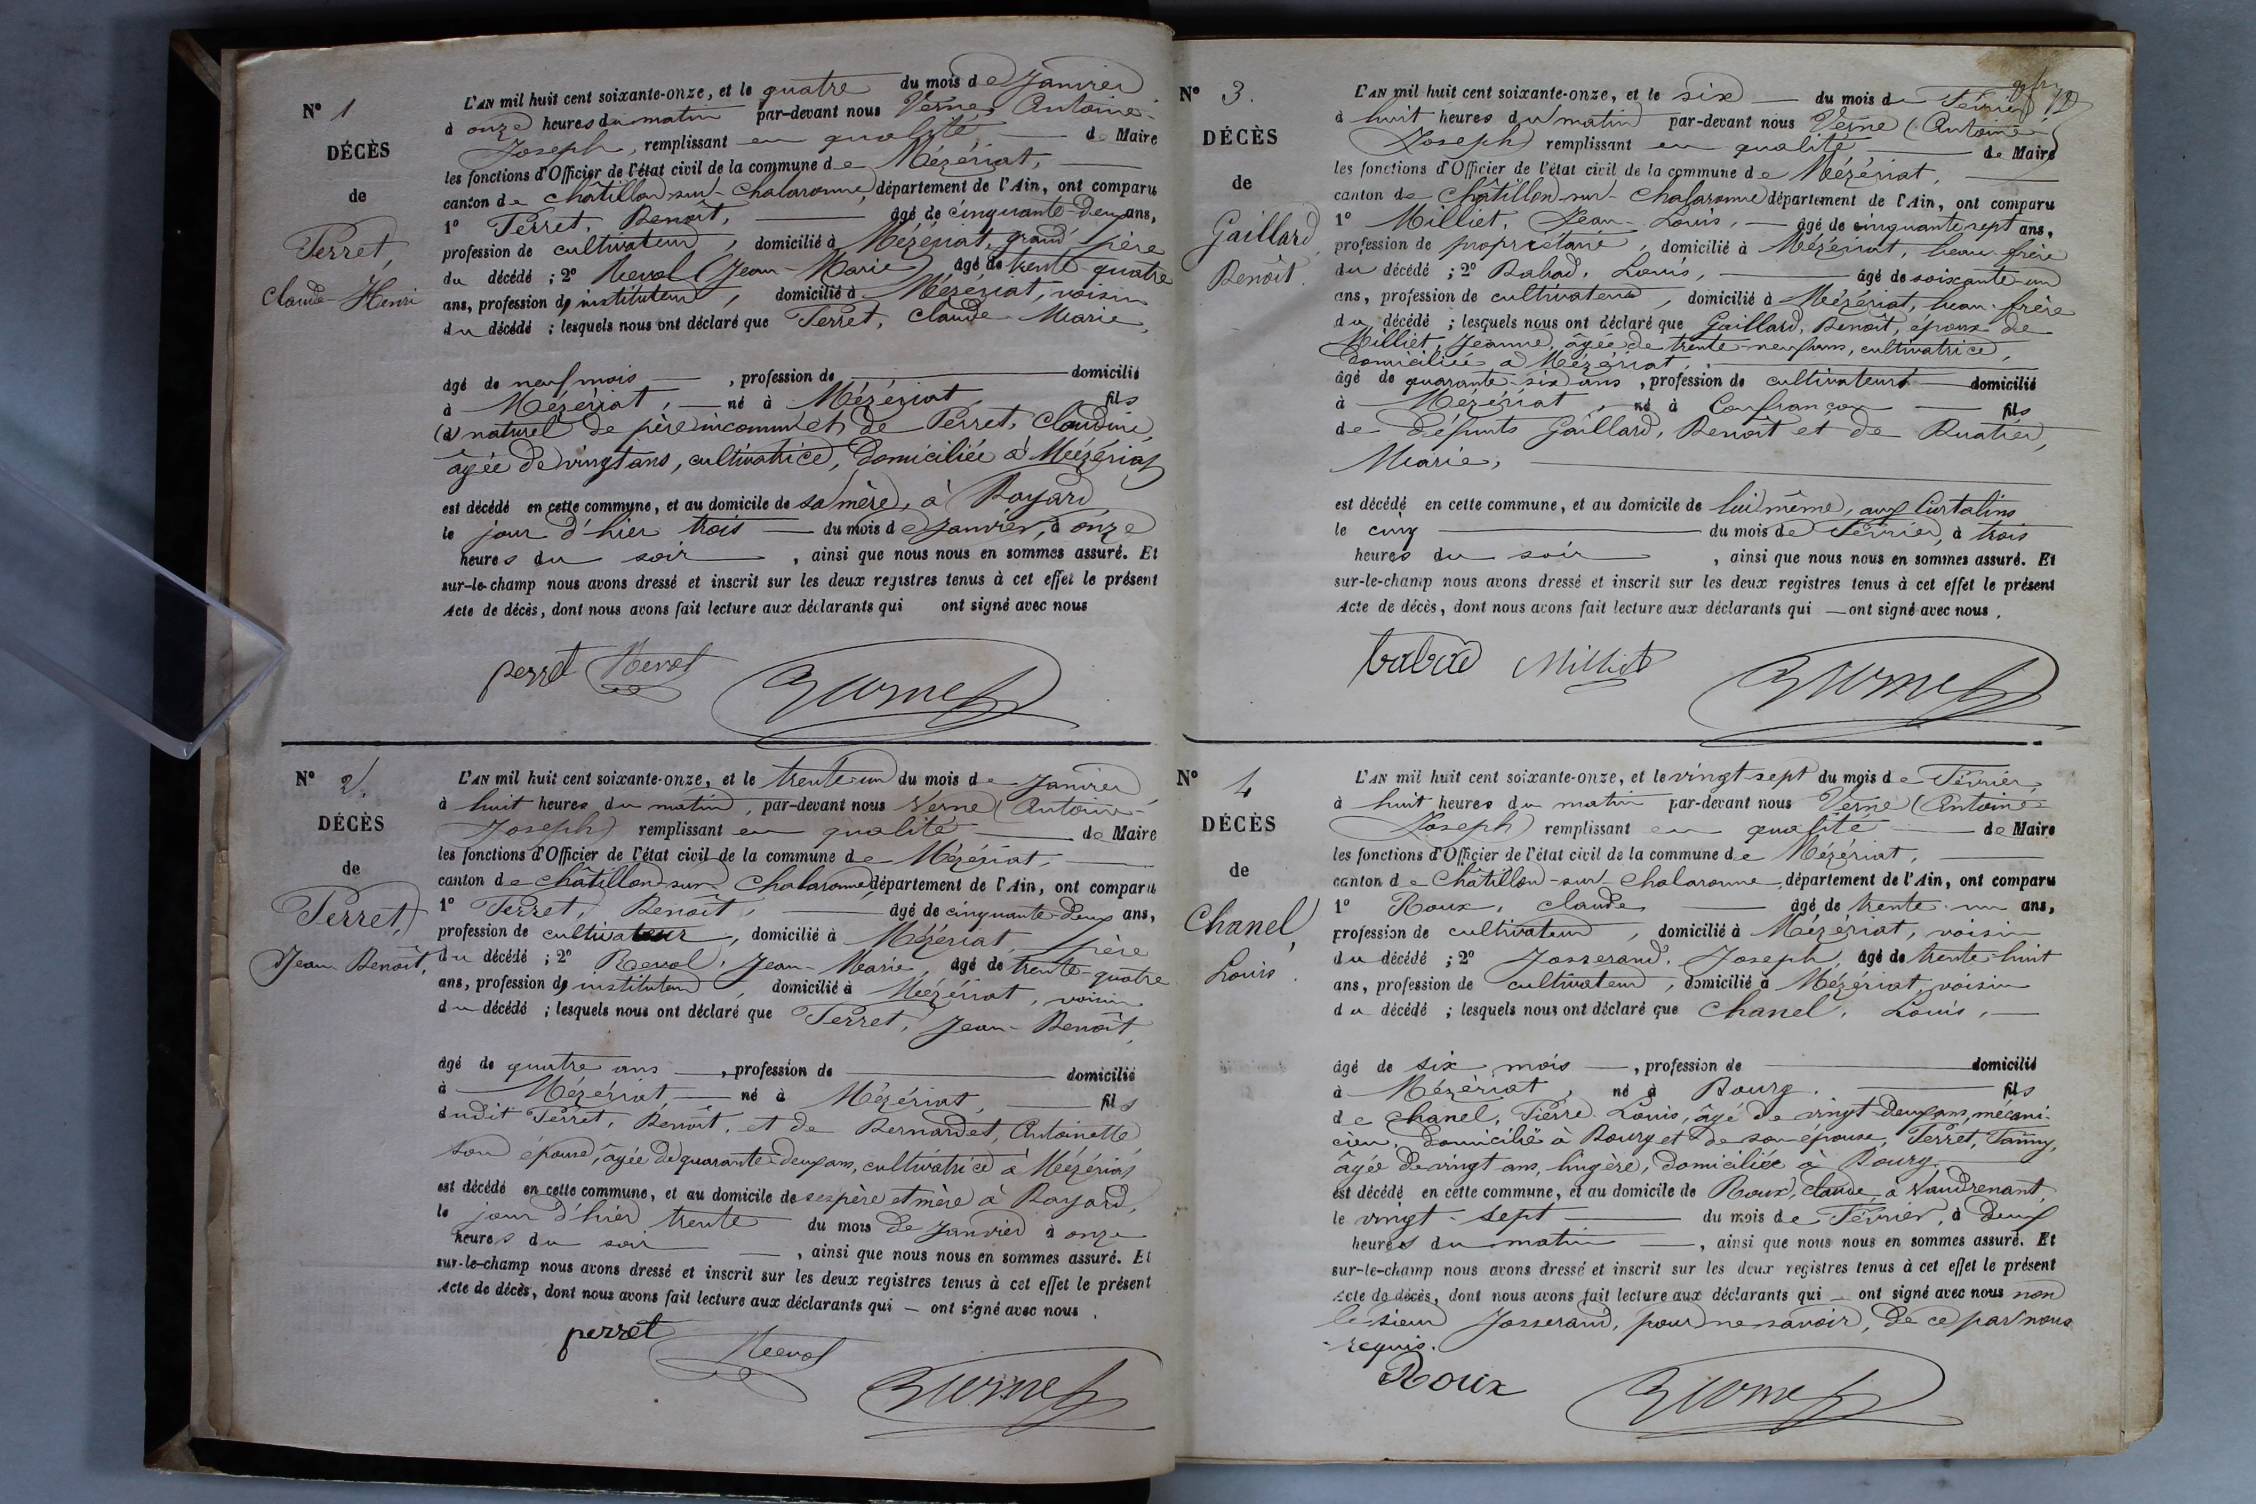 N° 1
DÉCÈS
de
Perret,
Claude-Henri
L'AN mil huit cent soixante-onze, et le quatre du mois de Janvier
à onze heures du matin par-devant nous Verne Antoine-
Joseph, remplissant en qualité de Maire
les fonctions d'Officier de l'état civil de la commune de Mézériat,
canton de Châtillon-sur-Chalaronne, département de l'Ain, ont comparu
1° Perret, Benoît, âgé de cinquante-deux ans,
profession de cultivateur, domicilié à Mézériat, grand père
du décédé ; 2° Revol (Jean-Marie) âgé de trente-quatre
ans, profession d, instituteur, domicilié à Mézériat, voisin
du décédé ; lesquels nous ont déclaré que Perret, Claude-Marie,
âgé de neuf mois, profession de domicilié
à Mézériat, né à Mézériat, fils
(d) naturel de père inconnu et de Perret, Claudine,
âgée de vingt ans, cultivatrice, domiciliée à Mézériat
est décédé en cette commune, et au domicile de sa mère, à Bayard
le jour d'hier trois du mois de Janvier, à onze
heures du soir, ainsi que nous nous en sommes assuré. Et
sur-le-champ nous avons dressé et inscrit sur les deux registres tenus à cet effet le présent
Acte de décès, dont nous avons fait lecture aux déclarants qui ont signé avec nous
perret Revol Verne
N° 2
DÉCÈS
de
Perret,
Jean Benoît,
L'AN mil huit cent soixante-onze, et le trente-un du mois de Janvier
à huit heures du matin, par-devant nous Verne (Antoine-
Joseph) remplissant en qualité de Maire
les fonctions d'Officier de l'état civil de la commune de Mézériat,
canton de Châtillon-sur-Chalaronne, département de l'Ain, ont comparu
1° Perret, Benoît, âgé de cinquante-deux ans,
profession de cultivateur, domicilié à Mézériat, père
du décédé ; 2° Revol, Jean-Marie, âgé de trente-quatre
ans, profession d, instituteur, domicilié à Mézériat, voisin
du décédé ; lesquels nous ont déclaré que Perret, Jean-Benoît,
âgé de quatre ans, profession de domicilié
à Mézériat, né à Mézériat, fils
dudit Perret, Benoît, et de Bernardet, Antoinette
son épouse, âgée de quarante-deux ans, cultivatrice à Mézériat
est décédé en cette commune, et au domicile de ses père et mère à Bayard,
le jour d'hier trente du mois de Janvier à onze
heures du soir, ainsi que nous nous en sommes assuré. Et
sur-le-champ nous avons dressé et inscrit sur les deux registres tenus à cet effet le présent
Acte de décès, dont nous avons fait lecture aux déclarants qui – ont signé avec nous.
perret Revol
Verne
N° 3.
DÉCÈS
de
Gaillard
Benoît.
L'AN mil huit cent soixante-onze, et le six du mois de Février
à huit heures du matin par-devant nous Verne (Antoine-
Joseph) remplissant en qualité de Maire
les fonctions d'Officier de l'état civil de la commune de Mézériat,
canton de Châtillon-sur-Chalaronne département de l'Ain, ont comparu
1° Milliet, Jean-Louis, âgé de cinquante sept ans,
profession de propriétaire, domicilié à Mézériat, beau-frère
du décédé ; 2° Babad, Louis, âgé de soixante-un
ans, profession de cultivateur, domicilié à Mézériat, beau-frère
du décédé ; lesquels nous ont déclaré que Gaillard, Benoît, époux de
Milliet, Jeanne, âgée de trente-neuf ans, cultivatrice,
domiciliée à Mézériat,
âgé de quarante-six ans, profession de cultivateur domicilié
à Mézériat, né à Confrançon fils
de défunts Gaillard, Benoît et de Buatier,
Marie,
est décédé en cette commune, et au domicile de lui même, aux Curtalins
le cinq du mois de Février, à trois
heures du soir, ainsi que nous nous en sommes assuré. Et
sur-le-champ nous avons dressé et inscrit sur les deux registres tenus à cet effet le présent
Acte de décès, dont nous avons fait lecture aux déclarants qui — ont signé avec nous.
babad Milliet Verne
N° 4
DÉCÈS
de
Chanel,
Louis.
L'AN mil huit cent soixante-onze, et le vingt sept du mois de Février,
à huit heures du matin par-devant nous Verne (Antoine-
Joseph) remplissant en qualité de Maire
les fonctions d'Officier de l'état civil de la commune de Mézériat,
canton de Châtillon-sur-Chalaronne, département de l'Ain, ont comparu
1° Roux, Claude âgé de trente-un ans,
profession de cultivateur, domicilié à Mézériat, voisin
du décédé ; 2° Josserand, Joseph, âgé de trente-huit
ans, profession de cultivateur, domicilié à Mézériat, voisin
du décédé ; lesquels nous ont déclaré que Chanel, Louis,
âgé de six mois, profession de domicilié
à Mézériat, né à Bourg. fils
de Chanel, Pierre-Louis, âgé de vingt-deux ans, mécani-
cien, domicilié à Bourg et de son épouse, Perret, Fanny,
âgée de vingt ans, lingère, domiciliée à Bourg
est décédé en cette commune, et au domicile de Roux, Claude, à Vaudrenant,
le vingt-sept du mois de Février, à deux
heures du matin, ainsi que nous nous en sommes assuré. Et
sur-le-champ nous avons dressé et inscrit sur les deux registres tenus à cet effet le présent
Acte de décès, dont nous avons fait lecture aux déclarants qui – ont signé avec nous non
le sieur Josserand, pour ne savoir, de ce par nous
requis.
Roux Verne